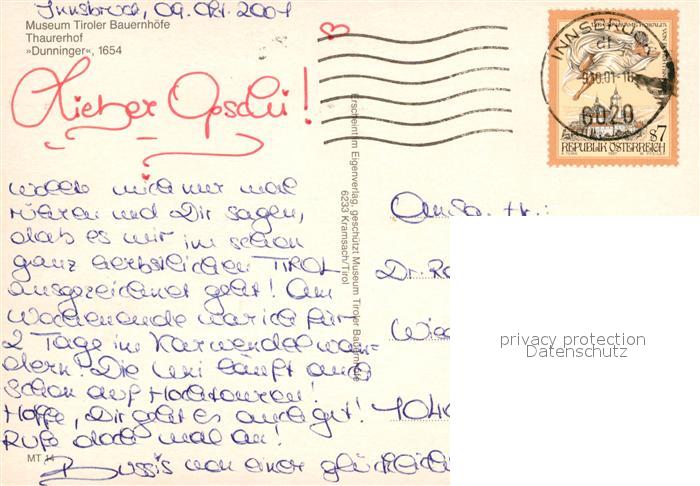 Innsbruck, 09. Okt. 2001
Museum Tiroler Bauernhöfe
Thaurerhof
»Dunninger«, 1654
Lieber Opschi!
wollte mich nur mal
rühren und Dir sagen,
daß es mir im schon
ganz herbstlichen TIROL
ausgezeichnet geht! Am
Wochenende war ich für
2 Tage im Karwendel wan-
dern! Die Uni läuft auch
schon auf Hochtouren!
Hoffe, Dir geht es auch gut!
Rufe doch mal an!
Bussis von einer glücklich
MT 14
Erscheint im Eigenverlag, geschützt Museum Tiroler Bauernhöfe
6233 Kramsach/Tirol
INNSBRUCK
9.10.01-18
6020
s7
REPUBLIK ÖSTERREICH
Dr. Ro
Wie
1040
privacy protection
Datenschutz